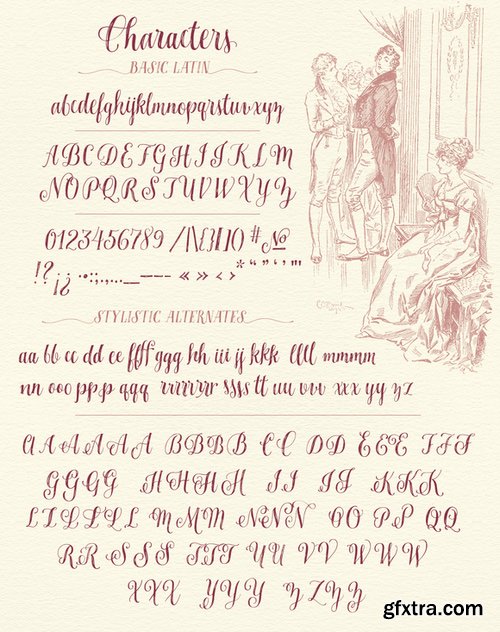 Characters
BASIC LATIN
abcdefghijklmnopqrstuvxyz
ABCDEFGHIJKLM
NOPQRSTUVWXYZ
0123456789 /|\{}[]() #№
!?¡¿·•:;.,...__—–- «» ‹›*“”‘’"'
STYLISTIC ALTERNATES
aa bb cc dd ee ffff ggg hh iii ij kkk llll mmmm
nn ooo ppp qqq rrrrrrr ssss tt uu vvv xxx yy zz
AAAAAA BBBB CC DD EEE FFF
GGGG HHHH II JJ KKK
LLLLLL MMM NNN OO PP QQ
RR SSS TTT UU VV WWW
XXX YYY ZZZZ
gfxtra.com